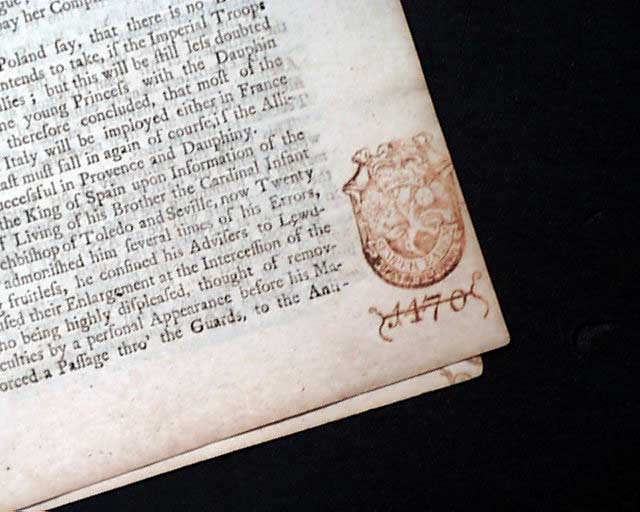 gue,
pay her Compan
Poland ſay, that there is no
ntends to take, if the Imperial Troops
llies; but this will be ſtill leſs doubted
he young Princeſs with the Dauphin
therefore concluded, that moſt of the
Italy will be imployed either in France
aſt muſt fall in again of courſe; if the Allie
ucceſsful in Provence and Dauphiny.
the King of Spain upon Information of the
f Living of his Brother the Cardinal Infant
chbiſhop of Toledo and Seville, now Twenty
admoniſhed him ſeveral times of his Errors,
fruitleſs, he confined his Adviſers to Lewd-
ſed their Enlargement at the Interceſſion of the
ho being highly diſpleaſed, thought of remov-
culties by a perſonal Appearance before his Ma-
orced a Paſſage thro' the Guards, to the Anti-
1470